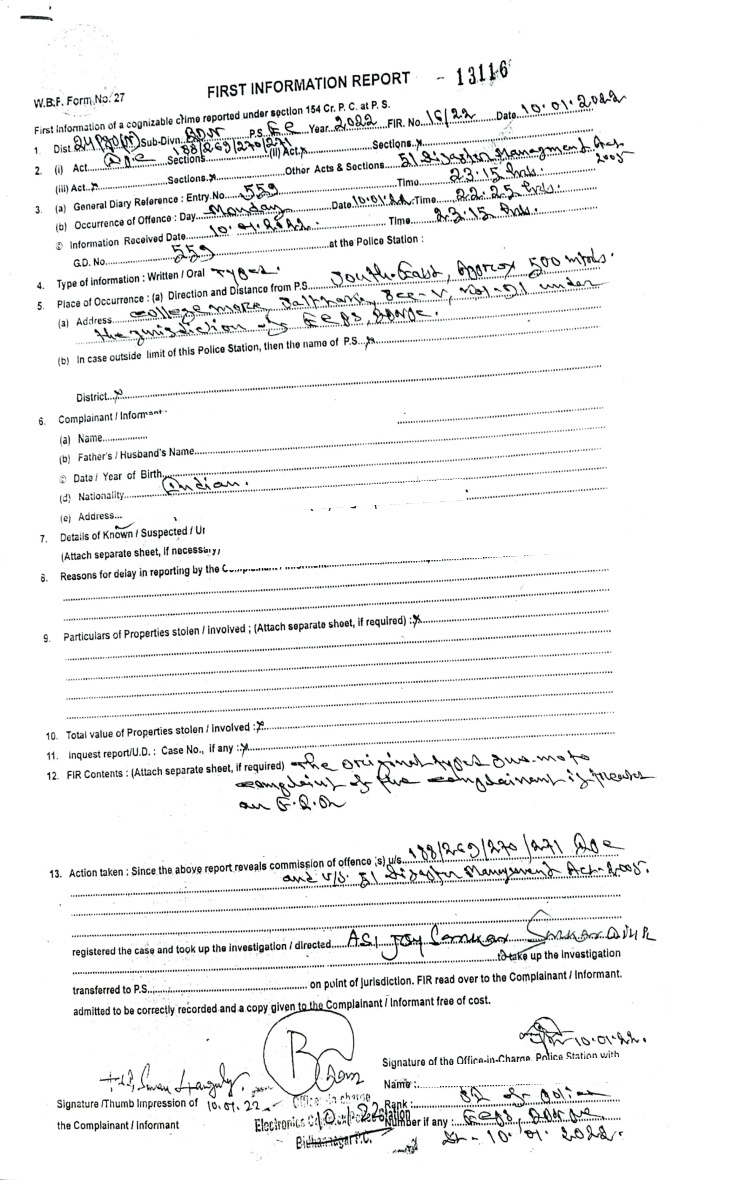 FIRST INFORMATION REPORT - 13116
W.B.F. Form No. 27
First Information of a cognizable crime reported under section 154 Cr. P. C. at P. S.
1 Dist. Sub-Divn. BDN P.S. Ec Year 2022 FIR. No. 16/22 Date 10.01.2022
2. (i) Act Sections 188/269/270/271 (ii) Act x Sections x
(iii) Act x Sections x Other Acts & Sections 51 Disaster Managment Act 2005
3. (a) General Diary Reference : Entry No. 559 Time 23.15 hrs.
(b) Occurrence of Offence : Day Monday Date 10.01.22 Time 22.25 hrs.
© Information Received Date 10.01.2022. Time 23.15 hrs.
G.D. No. 559 at the Police Station :
4. Type of information : Written / Oral Typed.
5. Place of Occurrence : (a) Direction and Distance from P.S. South-East, Approx 500 mtrs.
(a) Address College more, Saltlake, Sec-V, Kol-91 under
the jurisdiction of ECPS,
(b) In case outside limit of this Police Station, then the name of P.S. x
District x
6. Complainant / Informant
(a) Name
(b) Father's / Husband's Name
© Date / Year of Birth
(d) Nationality Indian.
(e) Address
7. Details of Known / Suspected / Un
(Attach separate sheet, If necessary)
8. Reasons for delay in reporting by the
9. Particulars of Properties stolen / involved ; (Attach separate sheet, if required) : x
10. Total value of Properties stolen / involved : x
11. Inquest report/U.D. : Case No., if any : x
12. FIR Contents : (Attach separate sheet, if required) The original typed suo-moto
complaint of the complainant is treated
an F.I.R
13. Action taken : Since the above report reveals commission of offence (s) u/s 188/269/270/271
and U/S. 51 Disaster Management Act-2005.
registered the case and took up the investigation / directed ASI Joy Sankar
to take up the investigation
transferred to P.S. on point of jurisdiction. FIR read over to the Complainant / Informant.
admitted to be correctly recorded and a copy given to the Complainant / Informant free of cost.
10.01.22.
Signature of the Office-in-Charne, Police Station with
Name :
Signature /Thumb Impression of 10.01.22
the Complainant / Informant
Officer in charge
Electronics Police Station
Bidhannagar P.C.
Rank : SI of Police
Number if any : ECPS,
Dt - 10.01.2022.